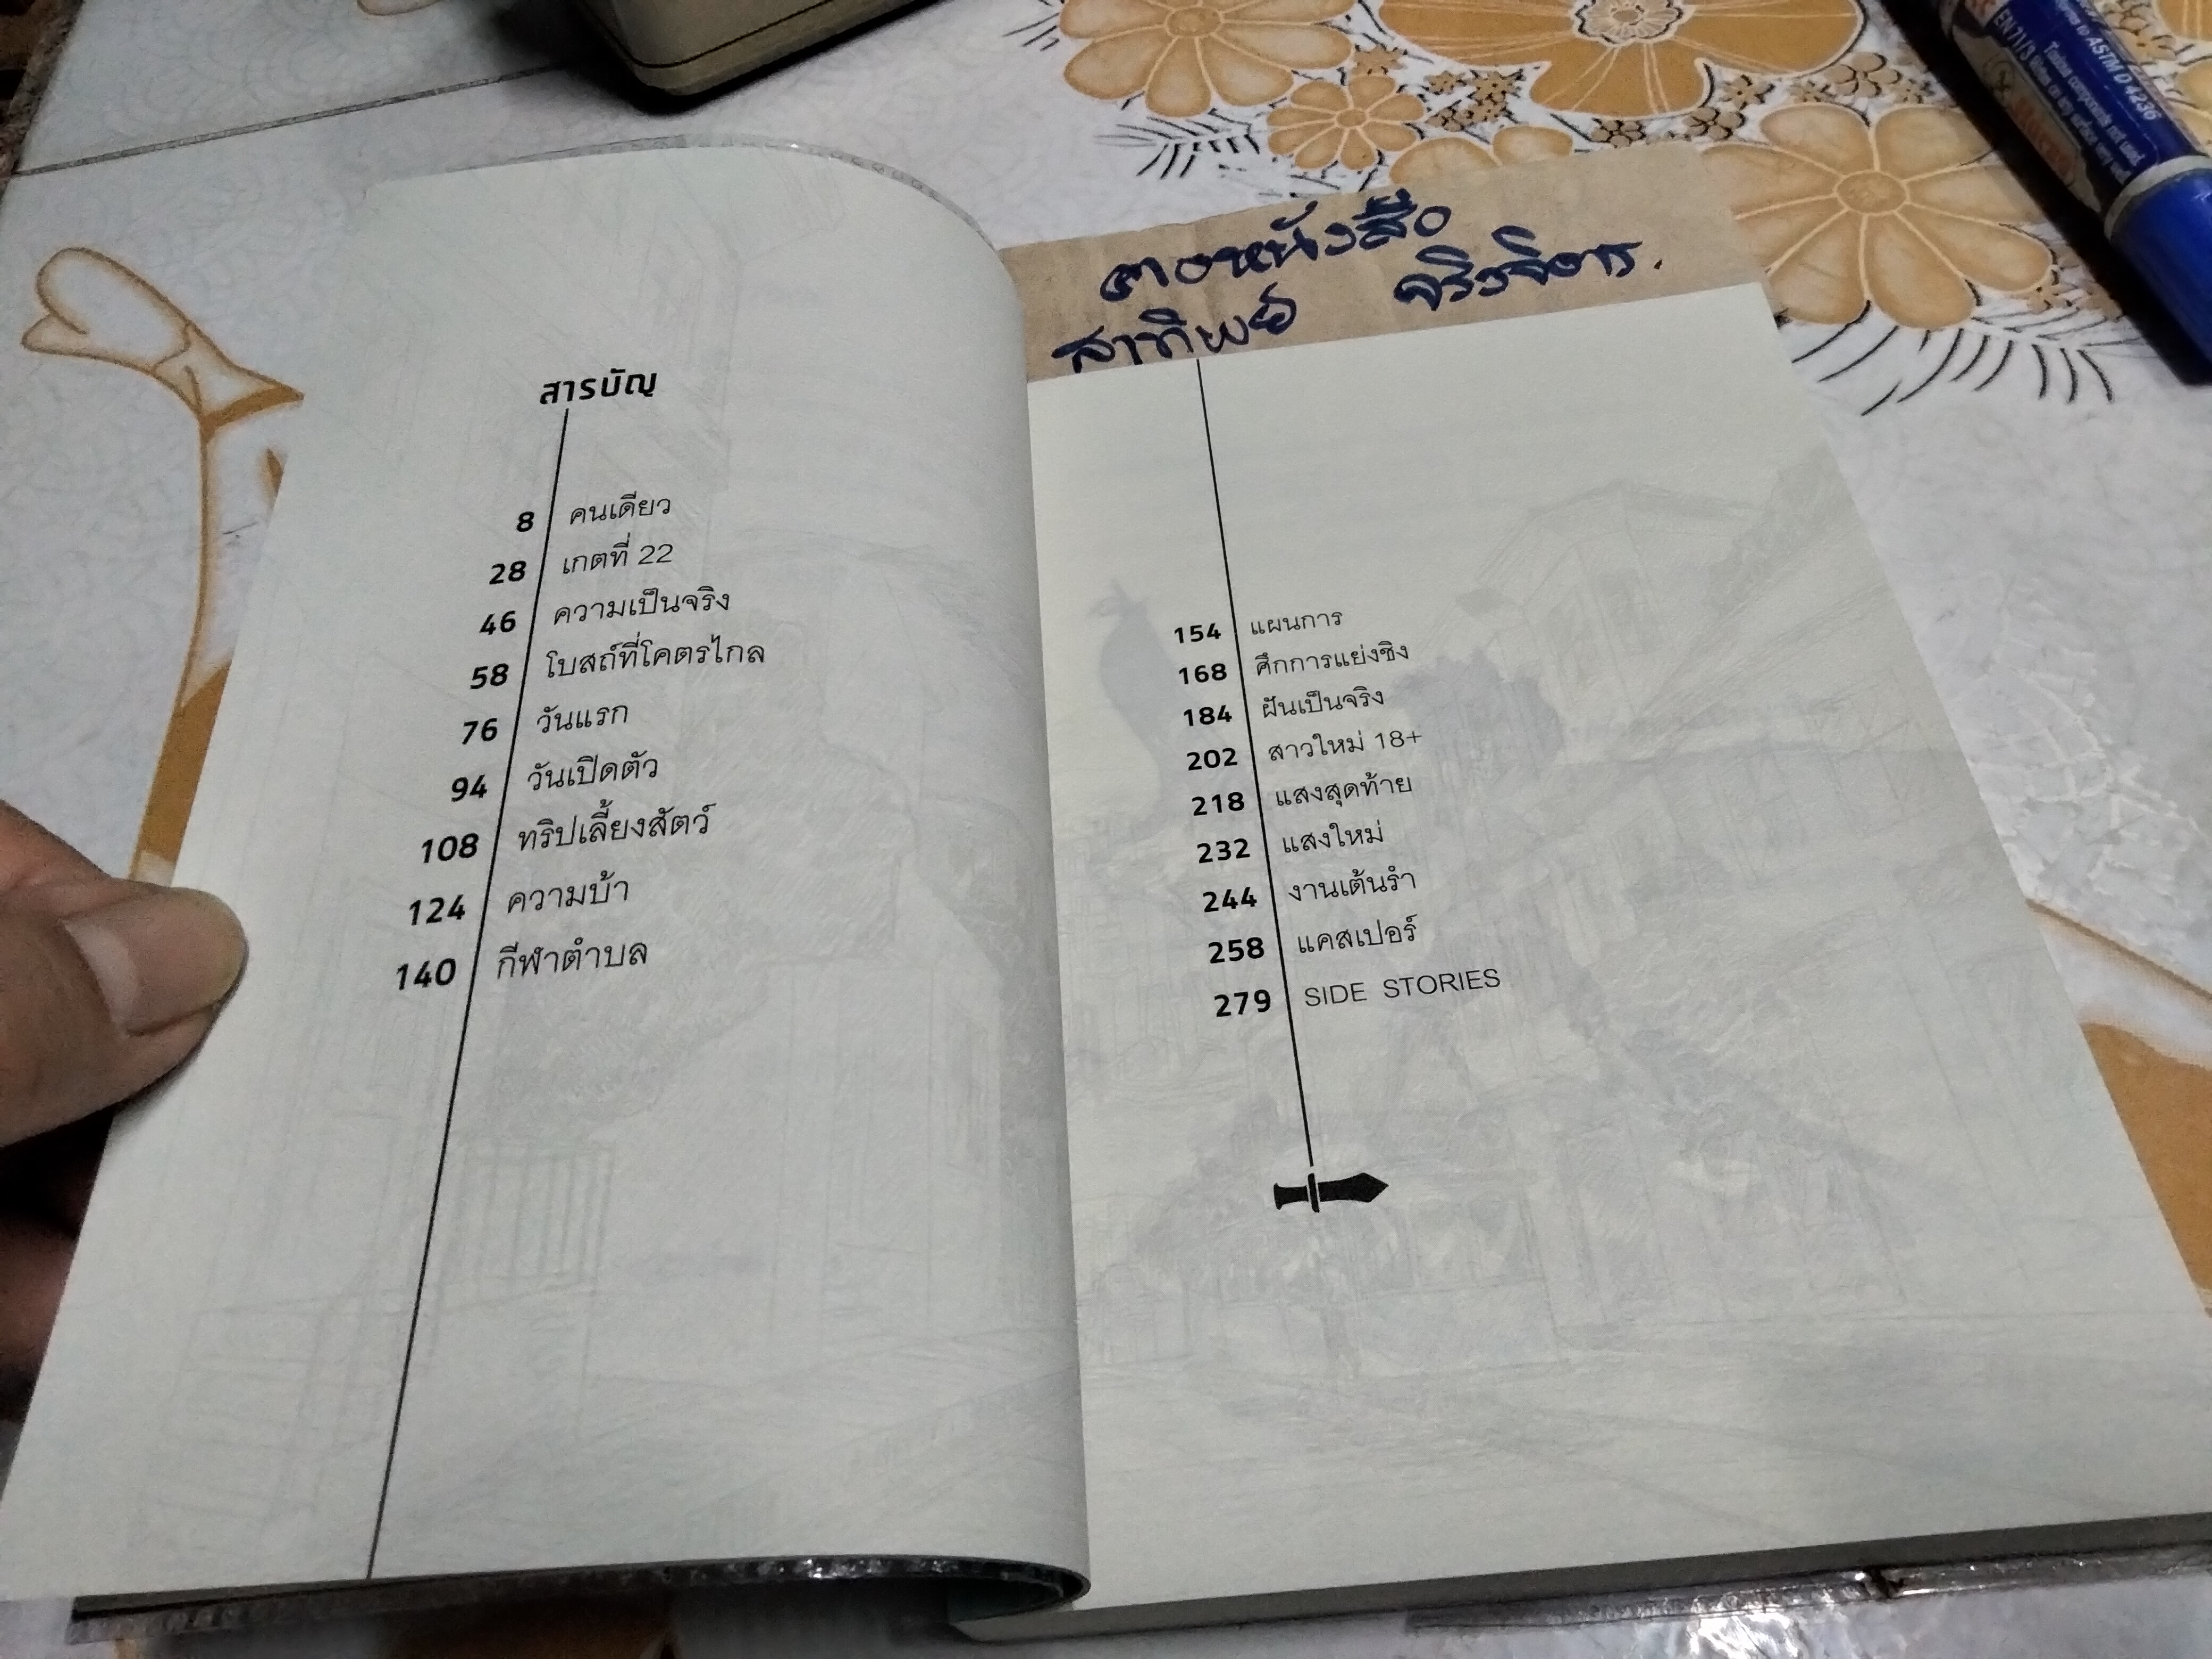 สารบัญ
8 คนเดียว
28 เกตที่ 22
46 ความเป็นจริง
58 โบสถ์ที่โคตรไกล
76 วันแรก
94 วันเปิดตัว
108 ทริปเลี้ยงสัตว์
124 ความบ้า
140 กีฬาตำบล
154 แผนการ
168 ศึกการแย่งชิง
184 ฝันเป็นจริง
202 สาวใหม่ 18+
218 แสงสุดท้าย
232 แสงใหม่
244 งานเต้นรำ
258 แคสเปอร์
279 SIDE STORIES
หนังสือ
ASTM D 4236
EN71/3